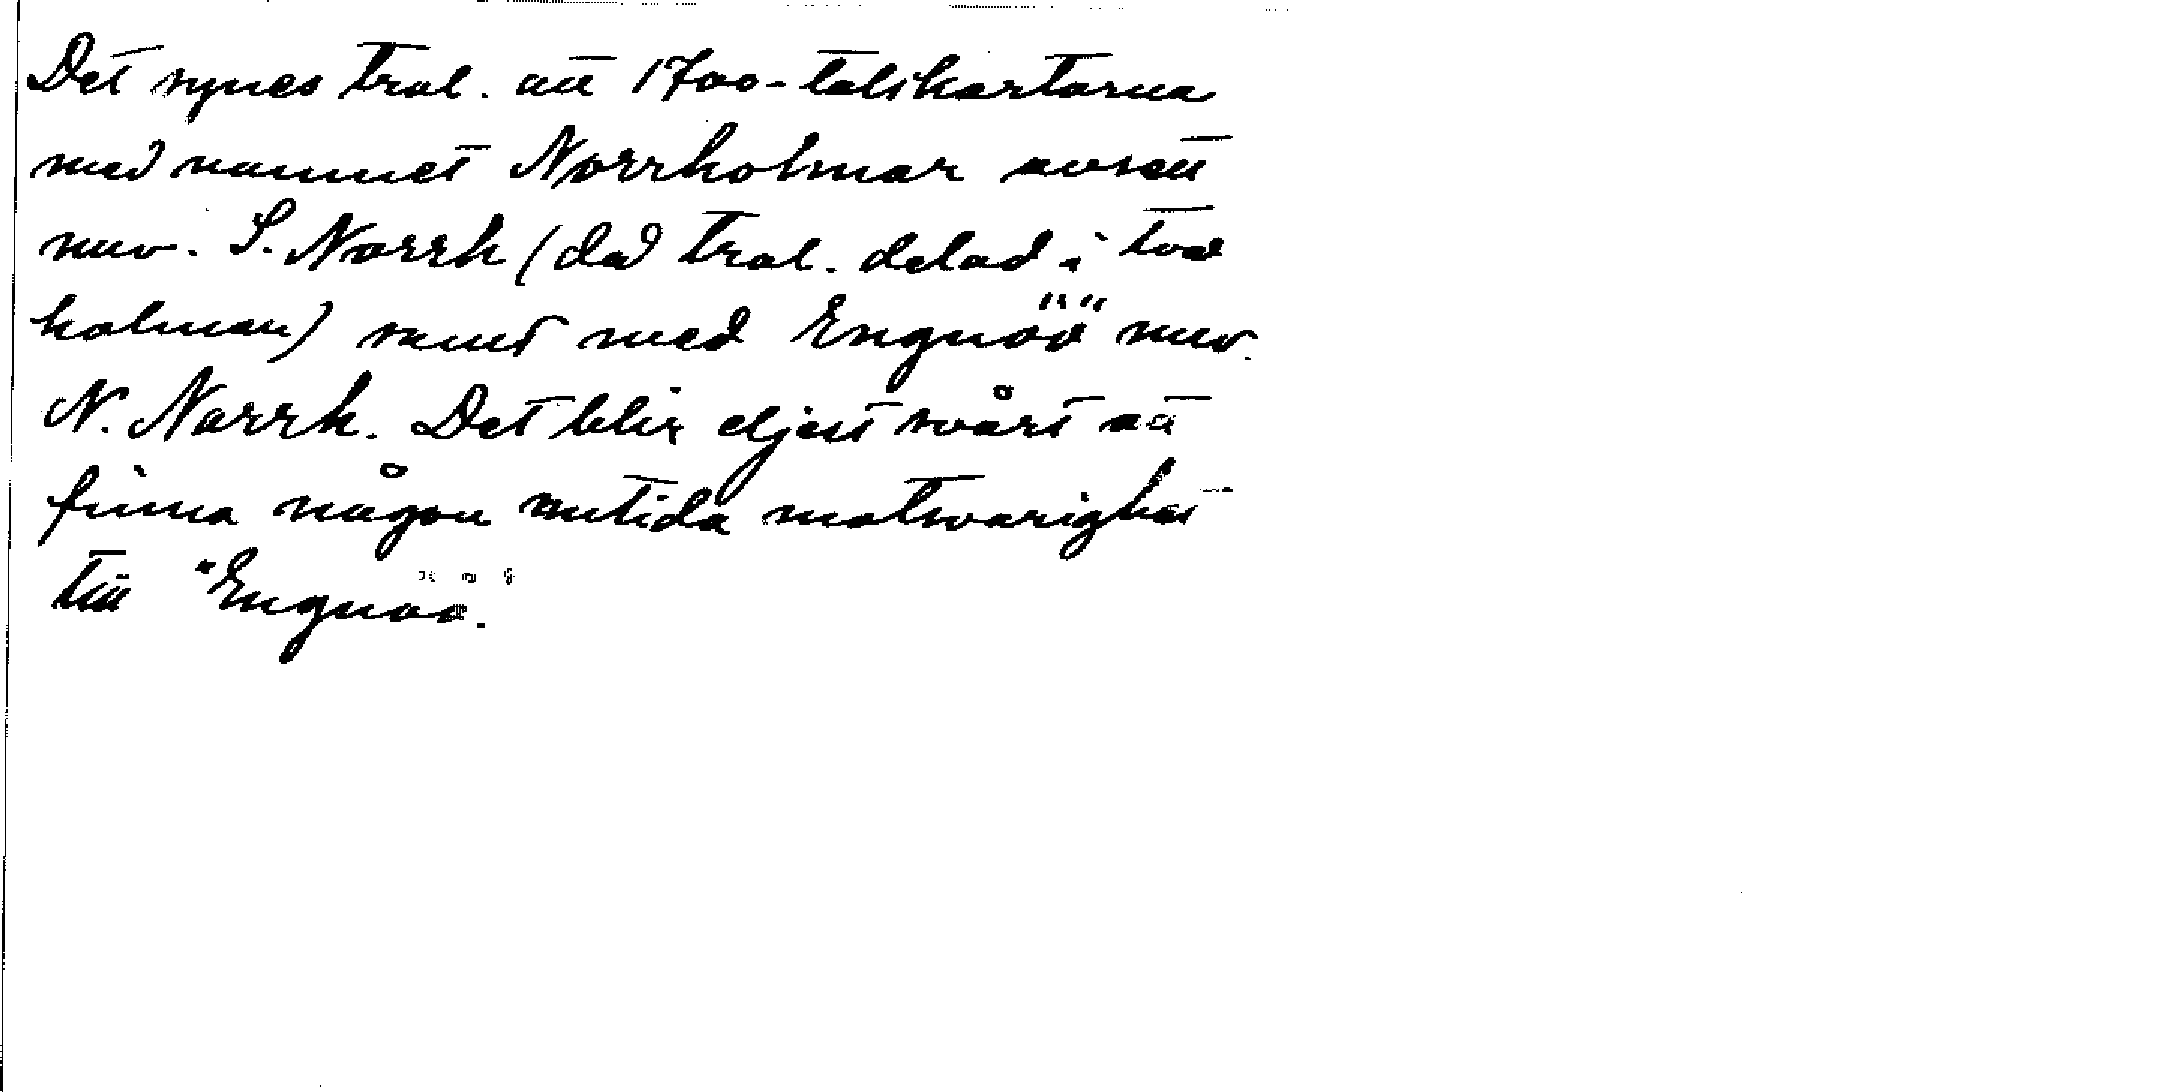 Det synes trol. att 1700-talskartorna
med namnet Norrholmar avsett
nuv. S. Norrh (då trol. delad i två
holmar) samt med Engnöö nuv.
N. Norrh. Det blir eljest svårt att
finna någon nutida motsvarighet
till "Engnöö".